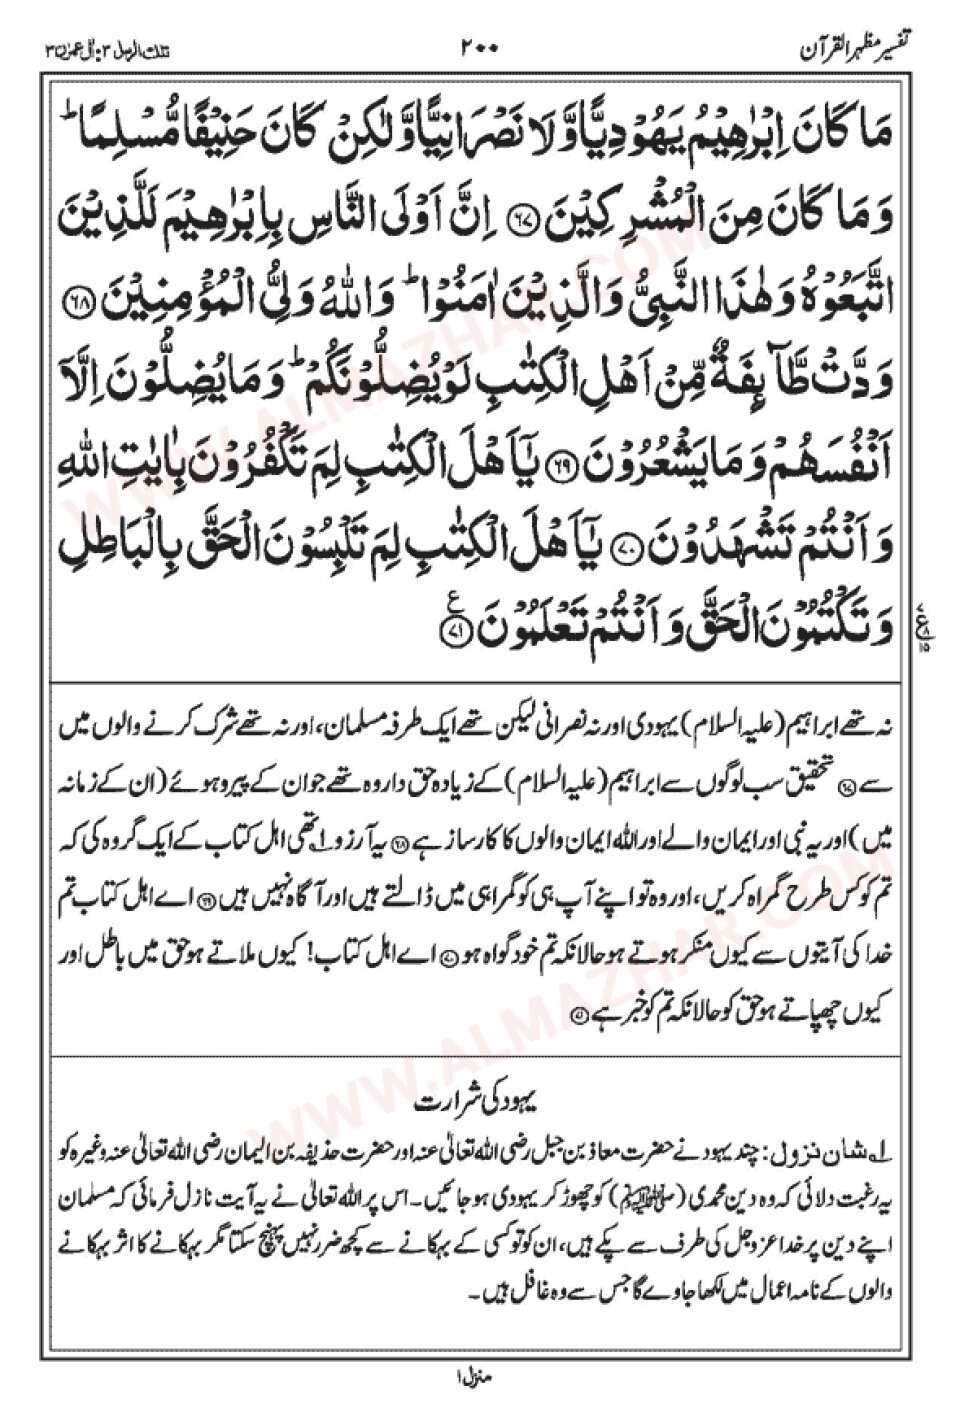 تفسیر مظہر القرآن
۲۰۰
تلك الرسل ۳: اٰل عمرٰن ۳
مَا كَانَ اِبْرٰهِيْمُ يَهُوْدِيًّا وَّلَا نَصْرَانِيًّا وَّلٰكِنْ كَانَ حَنِيْفًا مُّسْلِمًا ؕ
وَمَا كَانَ مِنَ الْمُشْرِكِيْنَ ﴿۶۷﴾ اِنَّ اَوْلَى النَّاسِ بِاِبْرٰهِيْمَ لَلَّذِيْنَ
اتَّبَعُوْهُ وَهٰذَا النَّبِىُّ وَالَّذِيْنَ اٰمَنُوْا ؕ وَاللّٰهُ وَلِىُّ الْمُؤْمِنِيْنَ ﴿۶۸﴾
وَدَّتْ طَّآئِفَةٌ مِّنْ اَهْلِ الْكِتٰبِ لَوْ يُضِلُّوْنَكُمْ ؕ وَمَا يُضِلُّوْنَ اِلَّاۤ
اَنْفُسَهُمْ وَمَا يَشْعُرُوْنَ ﴿۶۹﴾ يٰۤاَهْلَ الْكِتٰبِ لِمَ تَكْفُرُوْنَ بِاٰيٰتِ اللّٰهِ
وَاَنْتُمْ تَشْهَدُوْنَ ﴿۷۰﴾ يٰۤاَهْلَ الْكِتٰبِ لِمَ تَلْبِسُوْنَ الْحَقَّ بِالْبَاطِلِ
وَتَكْتُمُوْنَ الْحَقَّ وَاَنْتُمْ تَعْلَمُوْنَ ﴿۷۱﴾ ع
نہ تھے ابراہیم (علیہ السلام) یہودی اور نہ نصرانی لیکن تھے ایک طرفہ مسلمان، اور نہ تھے شرک کرنے والوں میں
سے ﴿۶۷﴾ تحقیق سب لوگوں سے ابراہیم (علیہ السلام) کے زیادہ حق دار وہ تھے جو ان کے پیرو ہوئے (ان کے زمانہ
میں) اور یہ نبی اور ایمان والے اور اللہ ایمان والوں کا کارساز ہے ﴿۶۸﴾ یہ آرزو ۱؎ تھی اہل کتاب کے ایک گروہ کی کہ
تم کو کس طرح گمراہ کریں، اور وہ تو اپنے آپ ہی کو گمراہی میں ڈالتے ہیں اور آگاہ نہیں ہیں ﴿۶۹﴾ اے اہل کتاب تم
خدا کی آیتوں سے کیوں منکر ہوتے ہو حالانکہ تم خود گواہ ہو ﴿۷۰﴾ اے اہل کتاب! کیوں ملاتے ہو حق میں باطل اور
کیوں چھپاتے ہو حق کو حالانکہ تم کو خبر ہے ﴿۷۱﴾
یہود کی شرارت
۱؎ شان نزول: چند یہود نے حضرت معاذ بن جبل رضی اللہ تعالیٰ عنہ اور حضرت حذیفہ بن الیمان رضی اللہ تعالیٰ عنہ وغیرہ کو
یہ رغبت دلائی کہ وہ دین محمدی (ﷺ) کو چھوڑ کر یہودی ہو جائیں۔ اس پر اللہ تعالیٰ نے یہ آیت نازل فرمائی کہ مسلمان
اپنے دین پر خدا عزوجل کی طرف سے پکے ہیں، ان کو تو کسی کے بہکانے سے کچھ ضرر نہیں پہنچ سکتا مگر بہکانے کا اثر بہکانے
والوں کے نامہ اعمال میں لکھا جاوے گا جس سے وہ غافل ہیں۔
منزل ۱
WWW.ALMAZHAR.COM
WWW.ALMAZHAR.COM